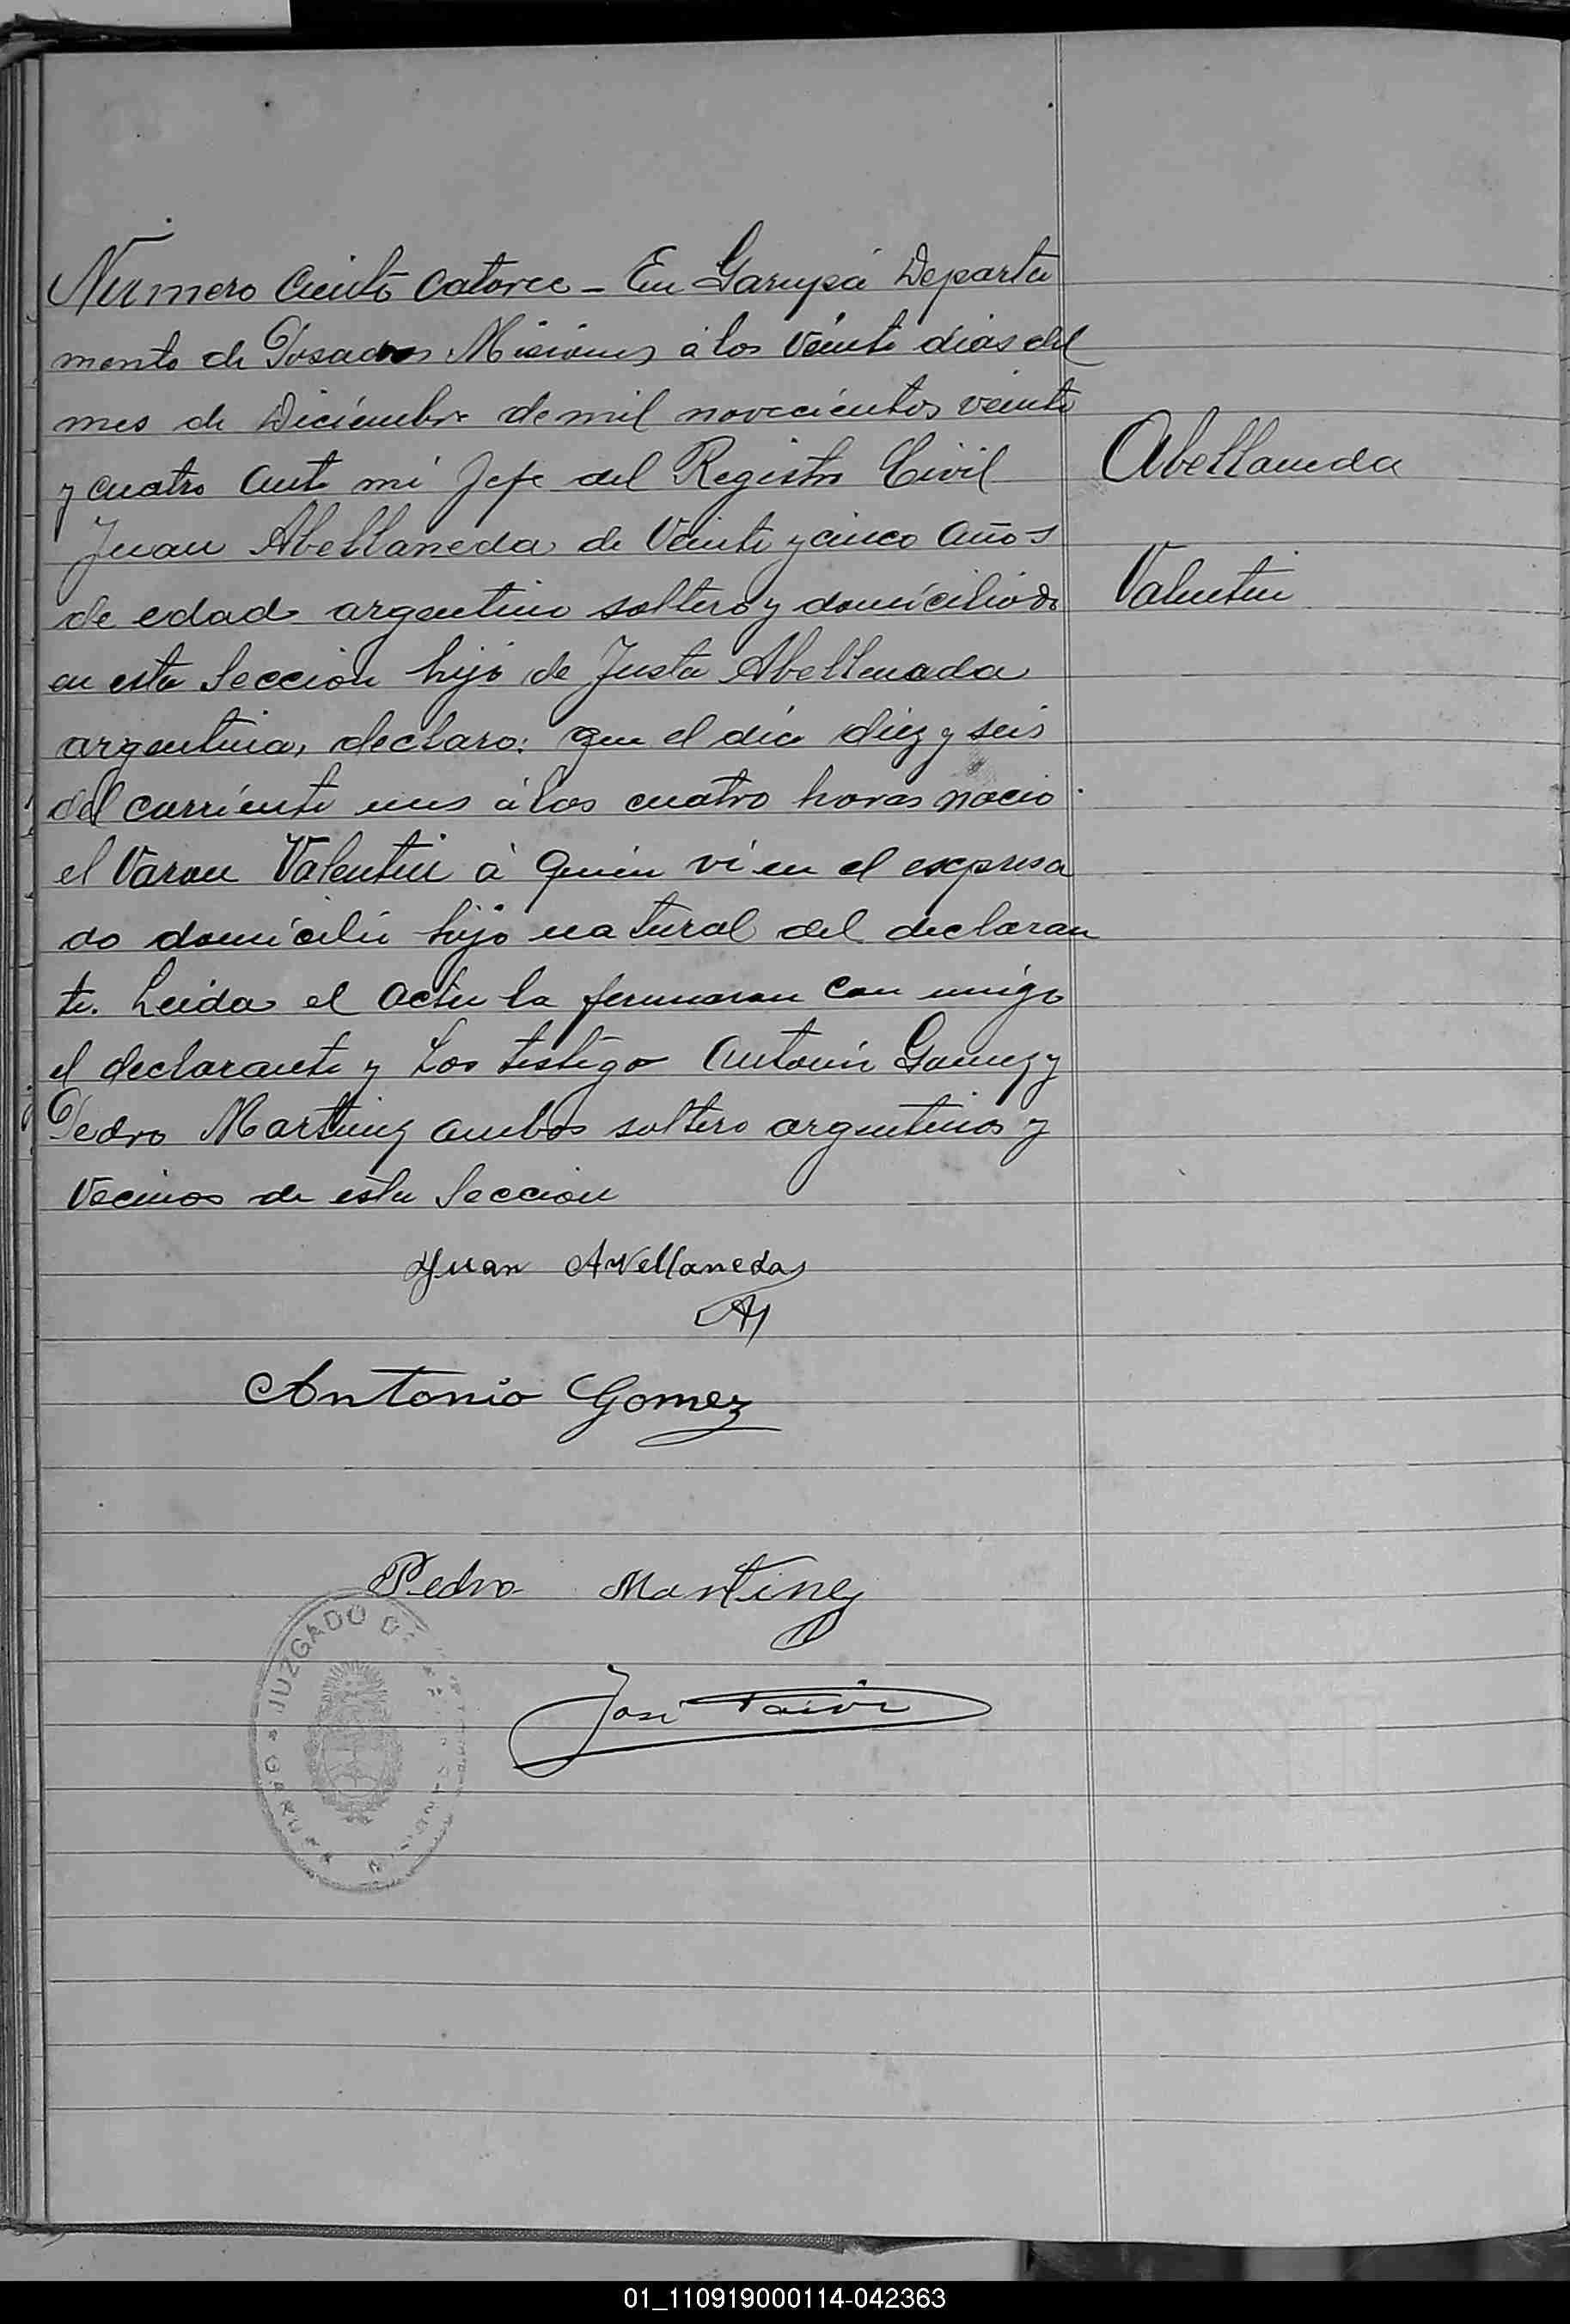 Número Ciento Catorce - En Garupá Departa
mento de Posadas Misiones á los Veinte dias del
mes de Diciembre de mil novecientos veinte
y cuatro Ante mi Jefe del Registro Civil
Juan Abellaneda de Veinte y cinco Años
de edad argentino soltero y domiciliado
en esta Sección hijo de Justa Abellenada
argentina, declaro: que el dia diez y seis
del corriente mes á las cuatro horas nacio
el Varon Valentin á quien vi en el expresa
do domicilio hijo natural del declaran
te. Leida el Acta la firmaron con migo
el declarante y Los testigo Antonio Gomez y
Pedro Martinez ambos soltero argentinos y
Vecinos de esta Sección
Abellaneda
Valentin
Juan Avellaneda
Antonio Gomez
Pedro Martinez
José
JUZGADO DE
GARUPA
01_110919000114-042363